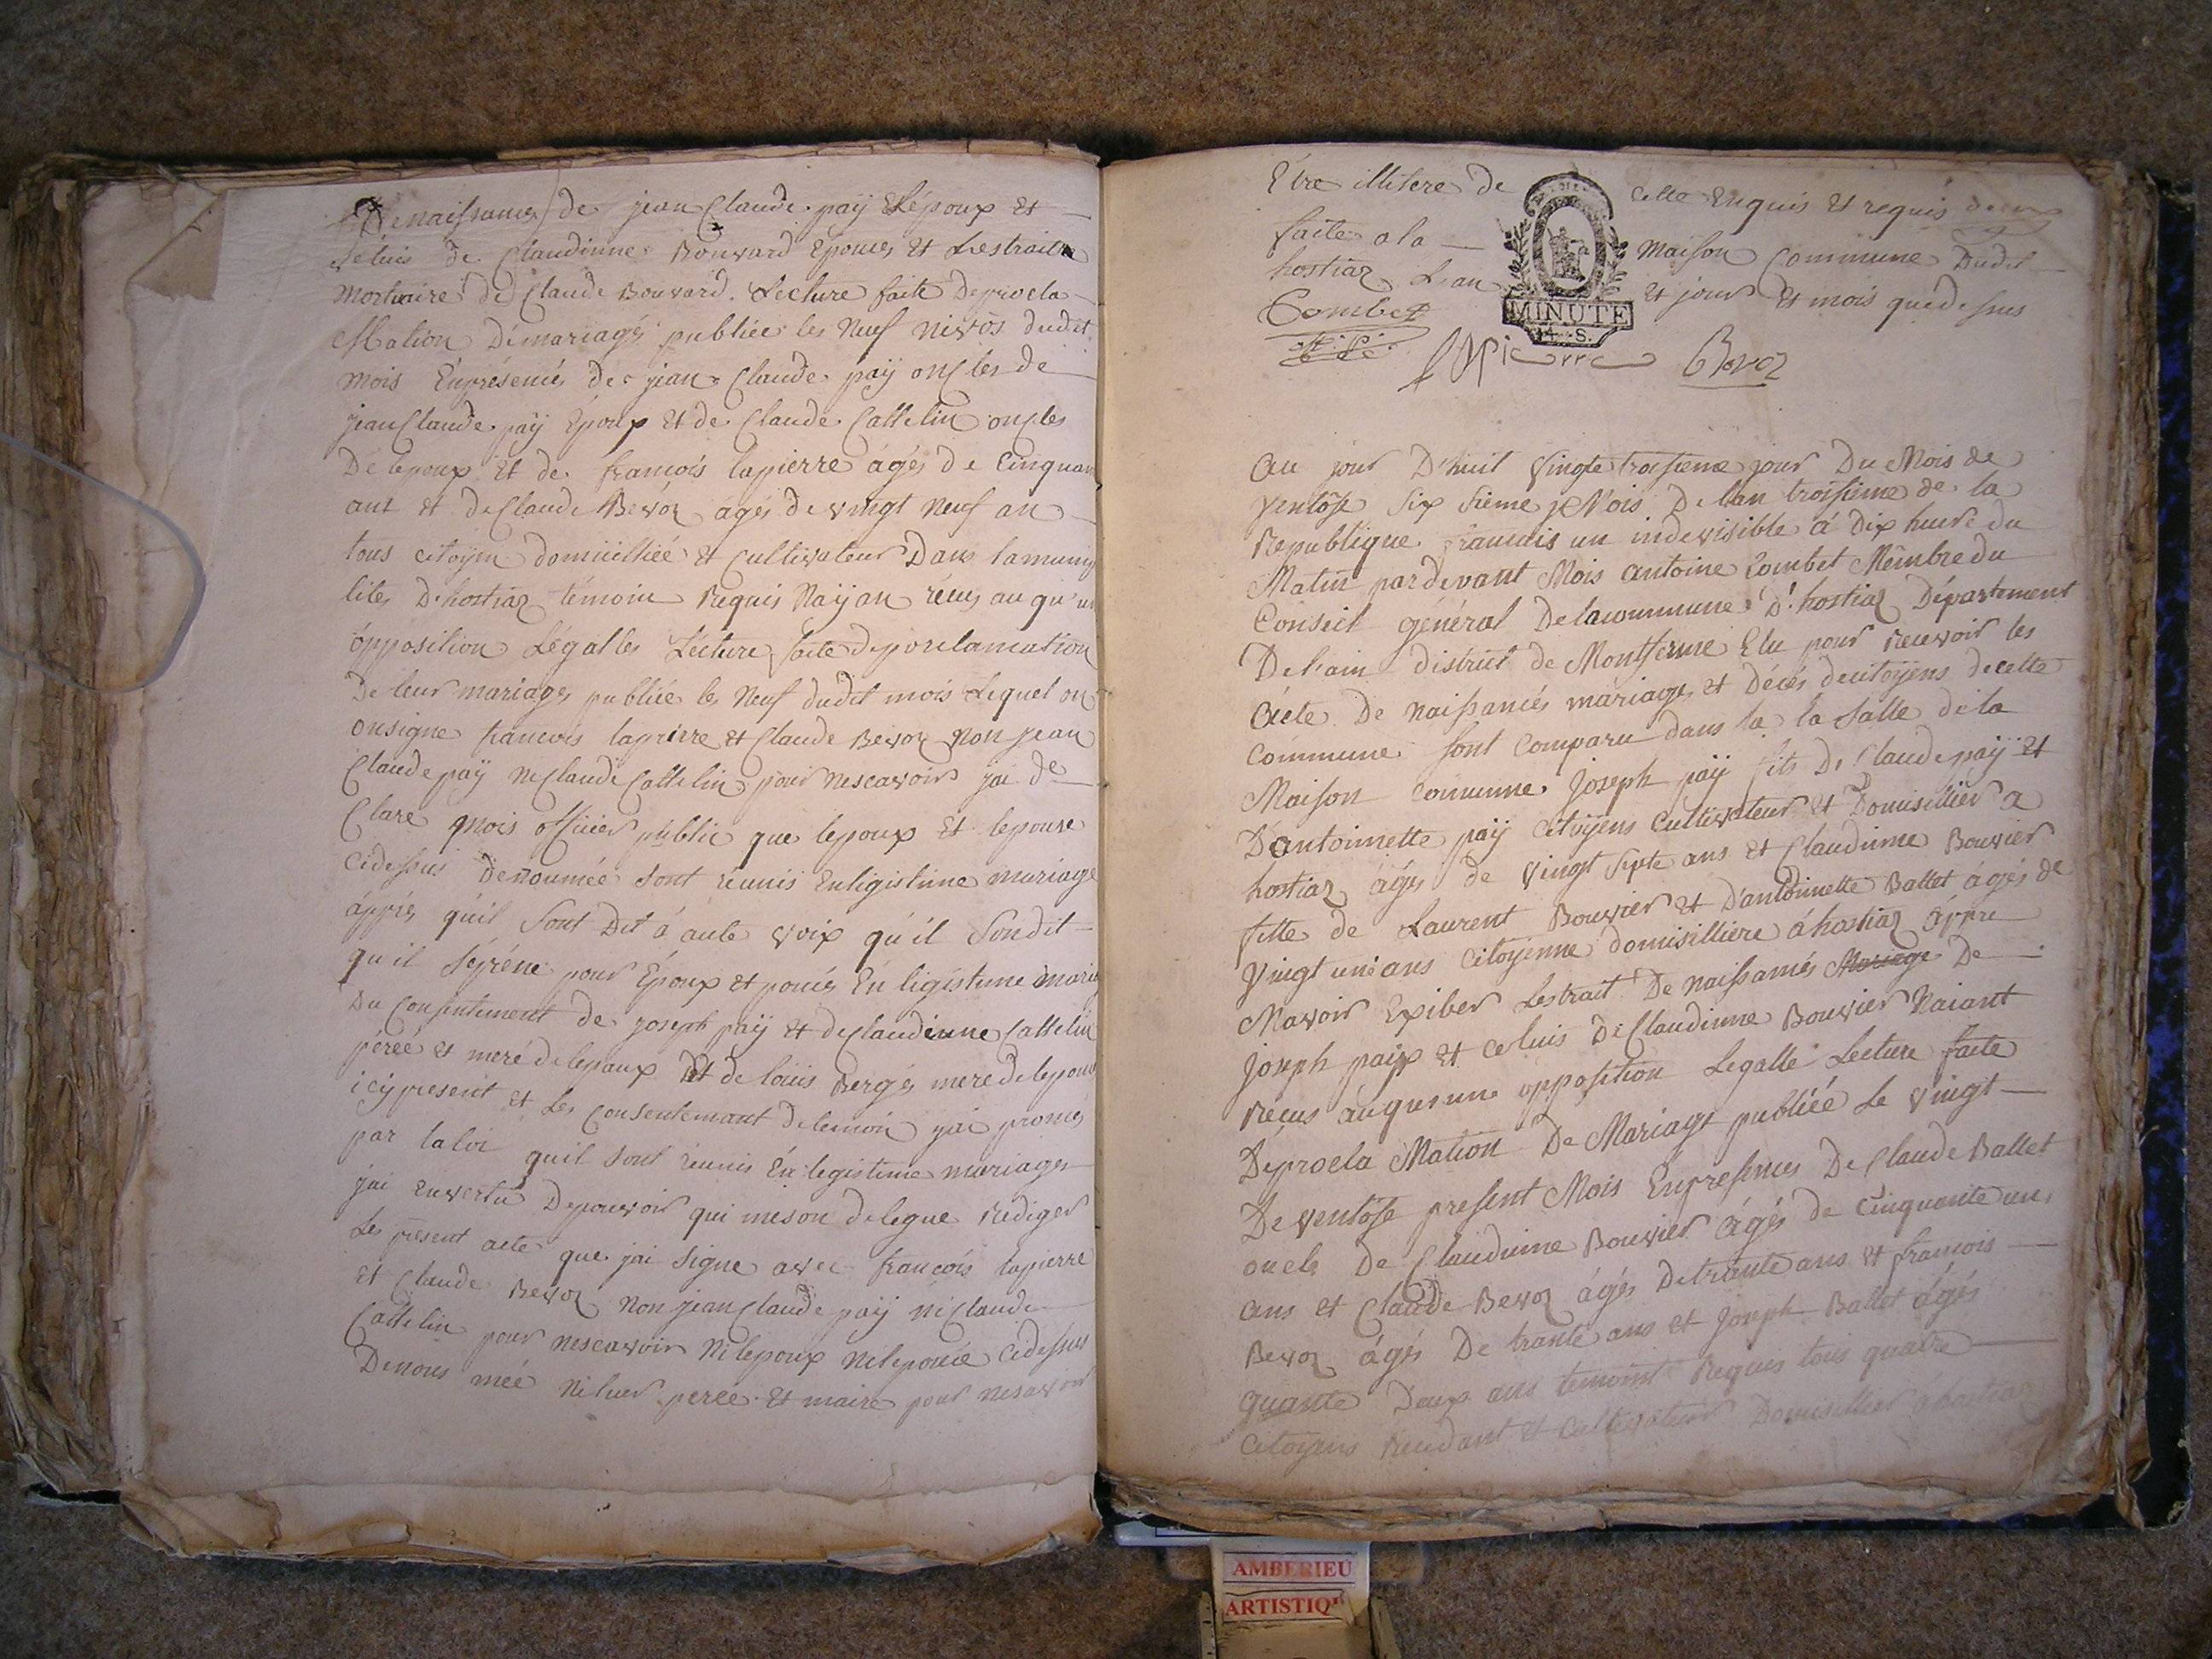 Denaissances de jean Claude paÿ Elépoux et
Celuis de Claudinne Bouvard Epouses et Lestraits
mortuaire de Claude Bouvard. Lecture faite Deprocla
Mation Démariagés publiée les Neuf nivôs dudit
mois Enprésences de jean Claude paÿ oncles de
jean Claude paÿ Époux et de Claude Cattelin oncles
De lepoux et de francois lapierre ágés de Cinquan
ant et de Claude Bevoz agés de vingt Neuf an
tous citoÿin domiciliéé et Cultivateur Dans lamunig
lites Dehostiaz témoin Requis Naÿan réeus auqu'un
opposition Légalles Lécture faite deporclamation
De leur mariages publiée les Neuf dudit mois Lequel on
onsigne francois lapierre et Claude Bevoz Non jean
Claude paÿ ne Claude Cattelin pour nescavoir jai de
Clare mois officier public que lepoux et lepouse
cidessus denoumée sont réunis Enligistime mariage
ápprés qu'il Sont Dit á aute voix qu'il Sondit
qu'il sépréne pour Époux et poués En ligistime mariag
Du Consentement de joseph paÿ et de Claudinne Cattelin
péréé et meré delepoux et de louis Bergés mere delepous
icÿ present et Les Consentemant delemoin jai pronés
par la loi quil sont réunis En legistime mariages
jai Envertu Depouvoir qui meson delegue Rediger
Les présent acte que jai Signe avec francois lapierre
et Claude Bevoz non jean Claude paÿ ni Claude
Cattelin pour nescavoir Ni lepoux nelepouée cidessus
Denous méé ni luer perée et maire pour nesavoir
Etre illitere de cette Enquis et requis
faite a la maison Commune Dudit
hostiaz Lan et jour et mois quedessus
Combet
MINUTE
4. S.
lapierre Bevoz
au jour D'huit vingte troisieme jour Du Mois de
ventôse Six sieme Mois De lan troisieme de la
Republique francais un indevisible á Dix huere du
Matin pardevant Mois antoine Combet Membre du
Conseil général Delacommune D'hostiaz Département
De l'ain district de Montferme Elu pour recevoir les
Acte De naissancés mariages et Décés decitoÿens decette
Commune sont comparu dans la la Salle déla
Maison commune Joseph paÿ fils De Claude paÿ et
D'antoinette paÿ citoÿens Cultivateur et Domisillier a
hostiaz ágés de vingt septe ans et Claudinne Bouvier
fille de Laurent Bouvier et D'antoinette Ballet ágés de
vingt un ans Citoyenne domisilliere á hostiaz áppre
Mavoir Exiber Lestrait De naissancés Mariage De
Joseph paÿ et celuis De Claudinne Bouvier Naiant
Récus auqueune opposition Legalle Lecture faite
Déprocla Mation De Mariage publiéé Le vingt
De ventôse present Mois Enpresences De Claude Ballet
oncle De Claudinne Bouvier ágés de Cinquante un
ans et Claude Bevoz ágés Detrante ans et francois
Bevoz ágés De trante ans et Joseph Ballet ágés
quante Deux ans temoint Requis tous quatre
Citoyens Residant et Cultivateur Domisillier á hostiaz
AMBERIEU
ARTISTIQ